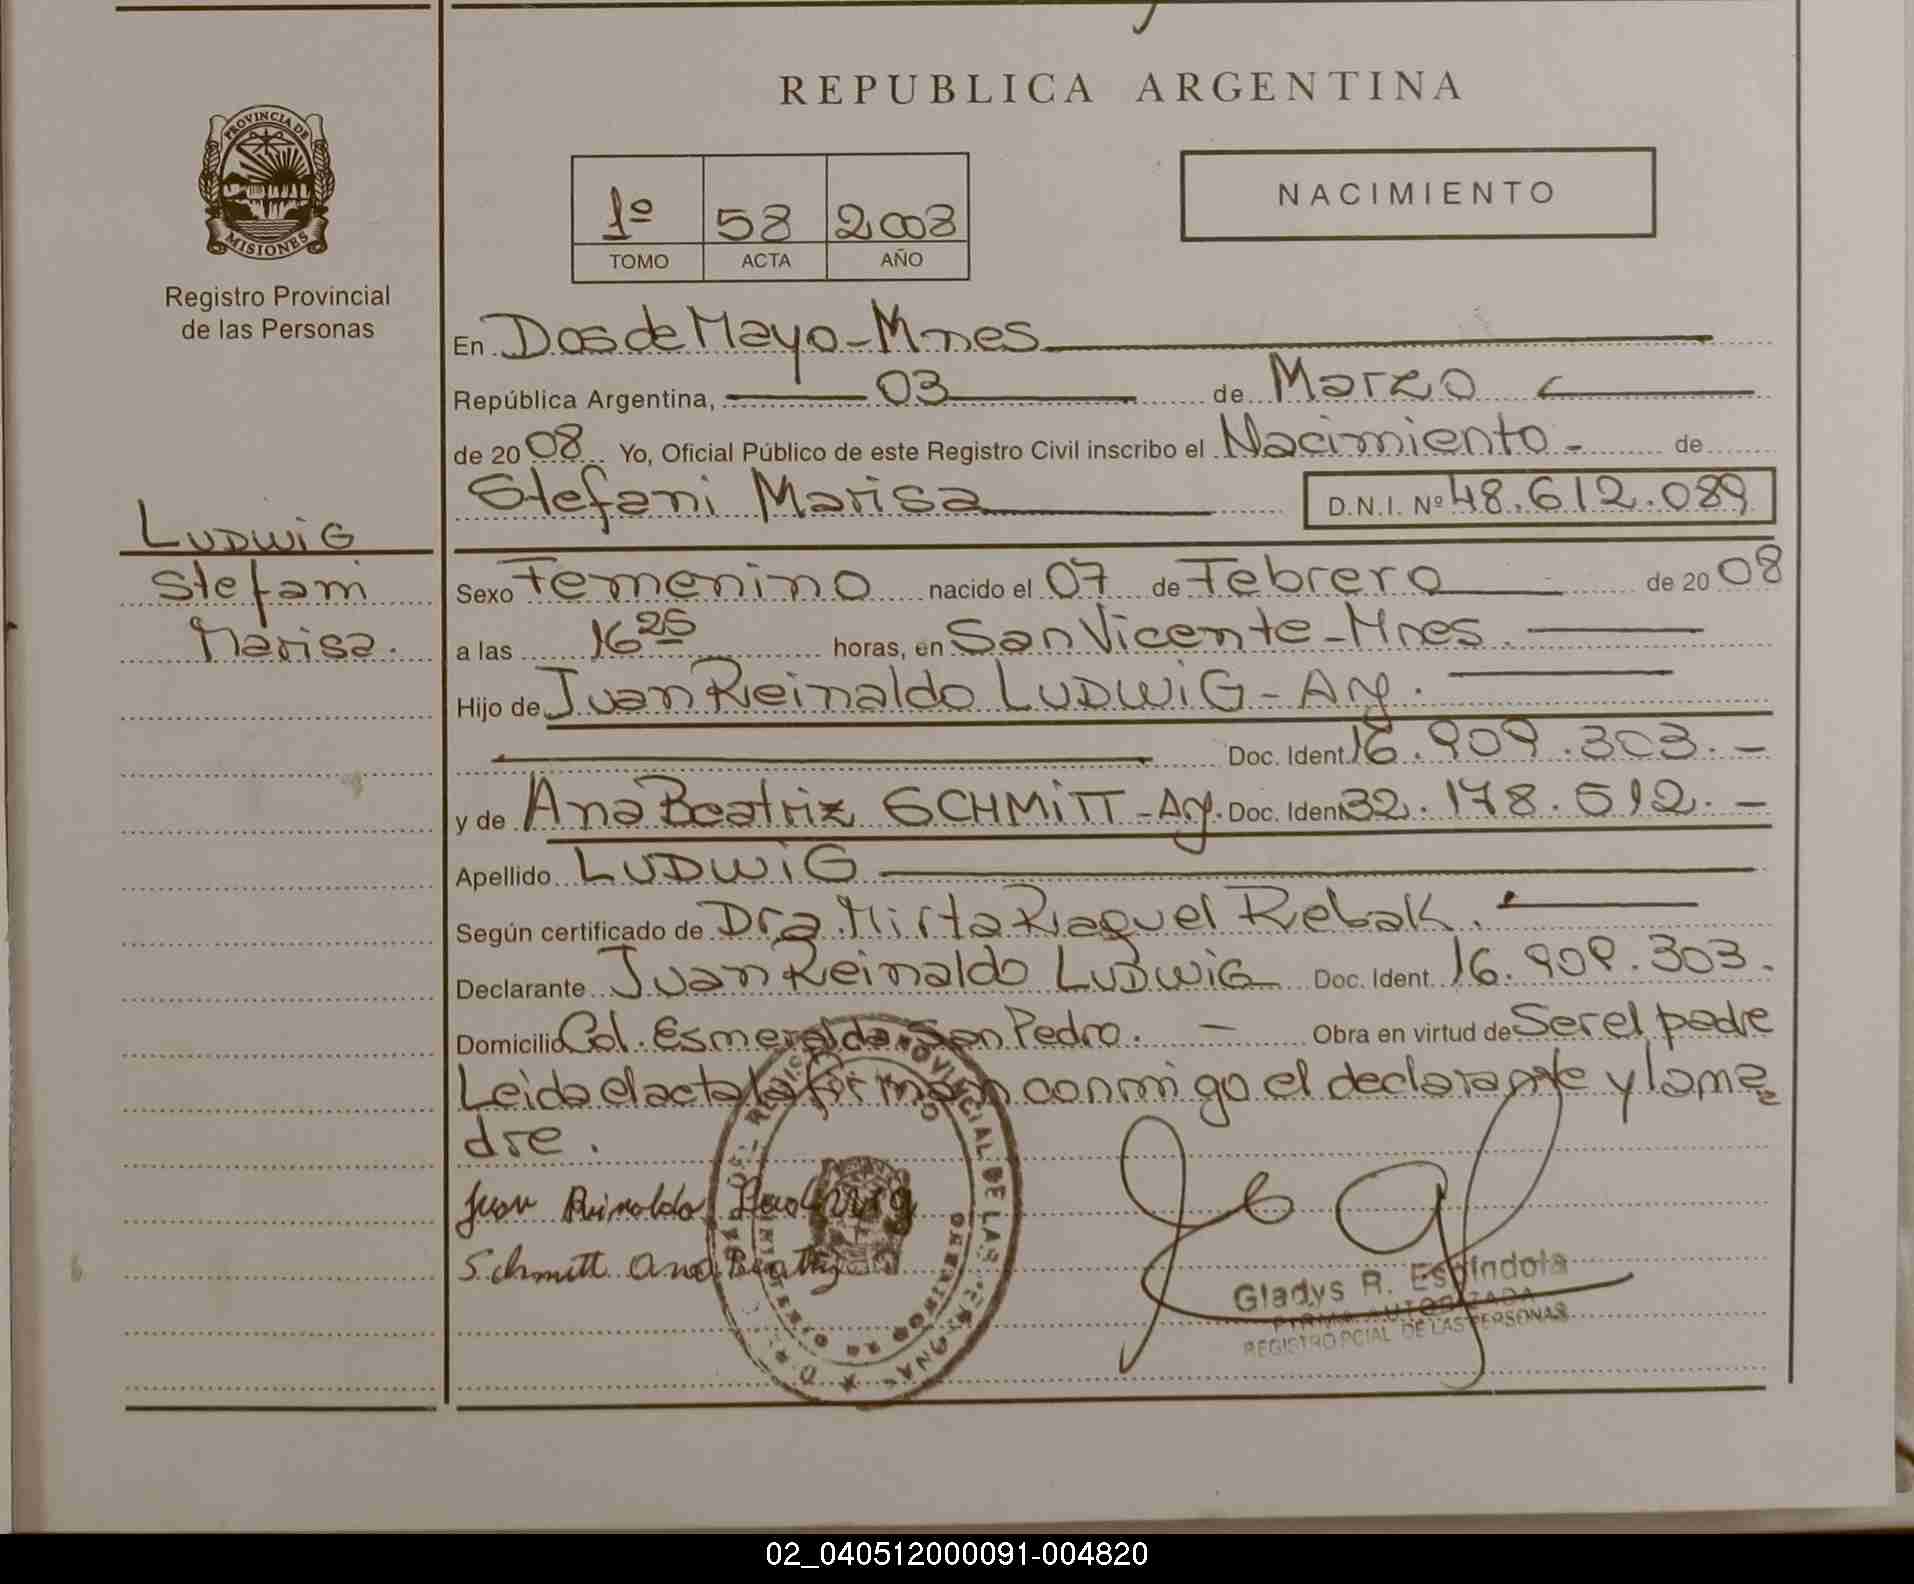 REPUBLICA ARGENTINA
PROVINCIA DE
MISIONES
Registro Provincial
de las Personas
1º 58 2008
TOMO ACTA AÑO
NACIMIENTO
En Dos de Mayo - Mnes
República Argentina, 03 de Marzo
de 20 08 Yo, Oficial Público de este Registro Civil inscribo el Nacimiento - de
Stefani Marisa D.N.I. Nº 48.612.089
LUDWiG
Stefani
Marisa.
Sexo Femenino nacido el 07 de Febrero de 20 08
a las 16 25 horas, en San Vicente - Mnes.
Hijo de Juan Reinaldo LUDWiG - Arg.
Doc. Ident. 16.909.303. -
y de Ana Beatriz SCHMiTT - Arg. Doc. Ident. 32.178.512. -
Apellido LUDWiG
Según certificado de Dra. Mirta Raquel Rebak.
Declarante Juan Reinaldo LUDWiG Doc. Ident. 16.909.303.
Domicilio Col. Esmeralda San Pedro. - Obra en virtud de Ser el padre
Leida el acta la firman conmigo el declarante y la ma
dre.
Juan Reinaldo Ludwig
Schmitt Ana Beatriz
Gladys R. Espíndola
FIRMA AUTORIZADA
REGISTRO PCIAL DE LAS PERSONAS
02_040512000091-004820